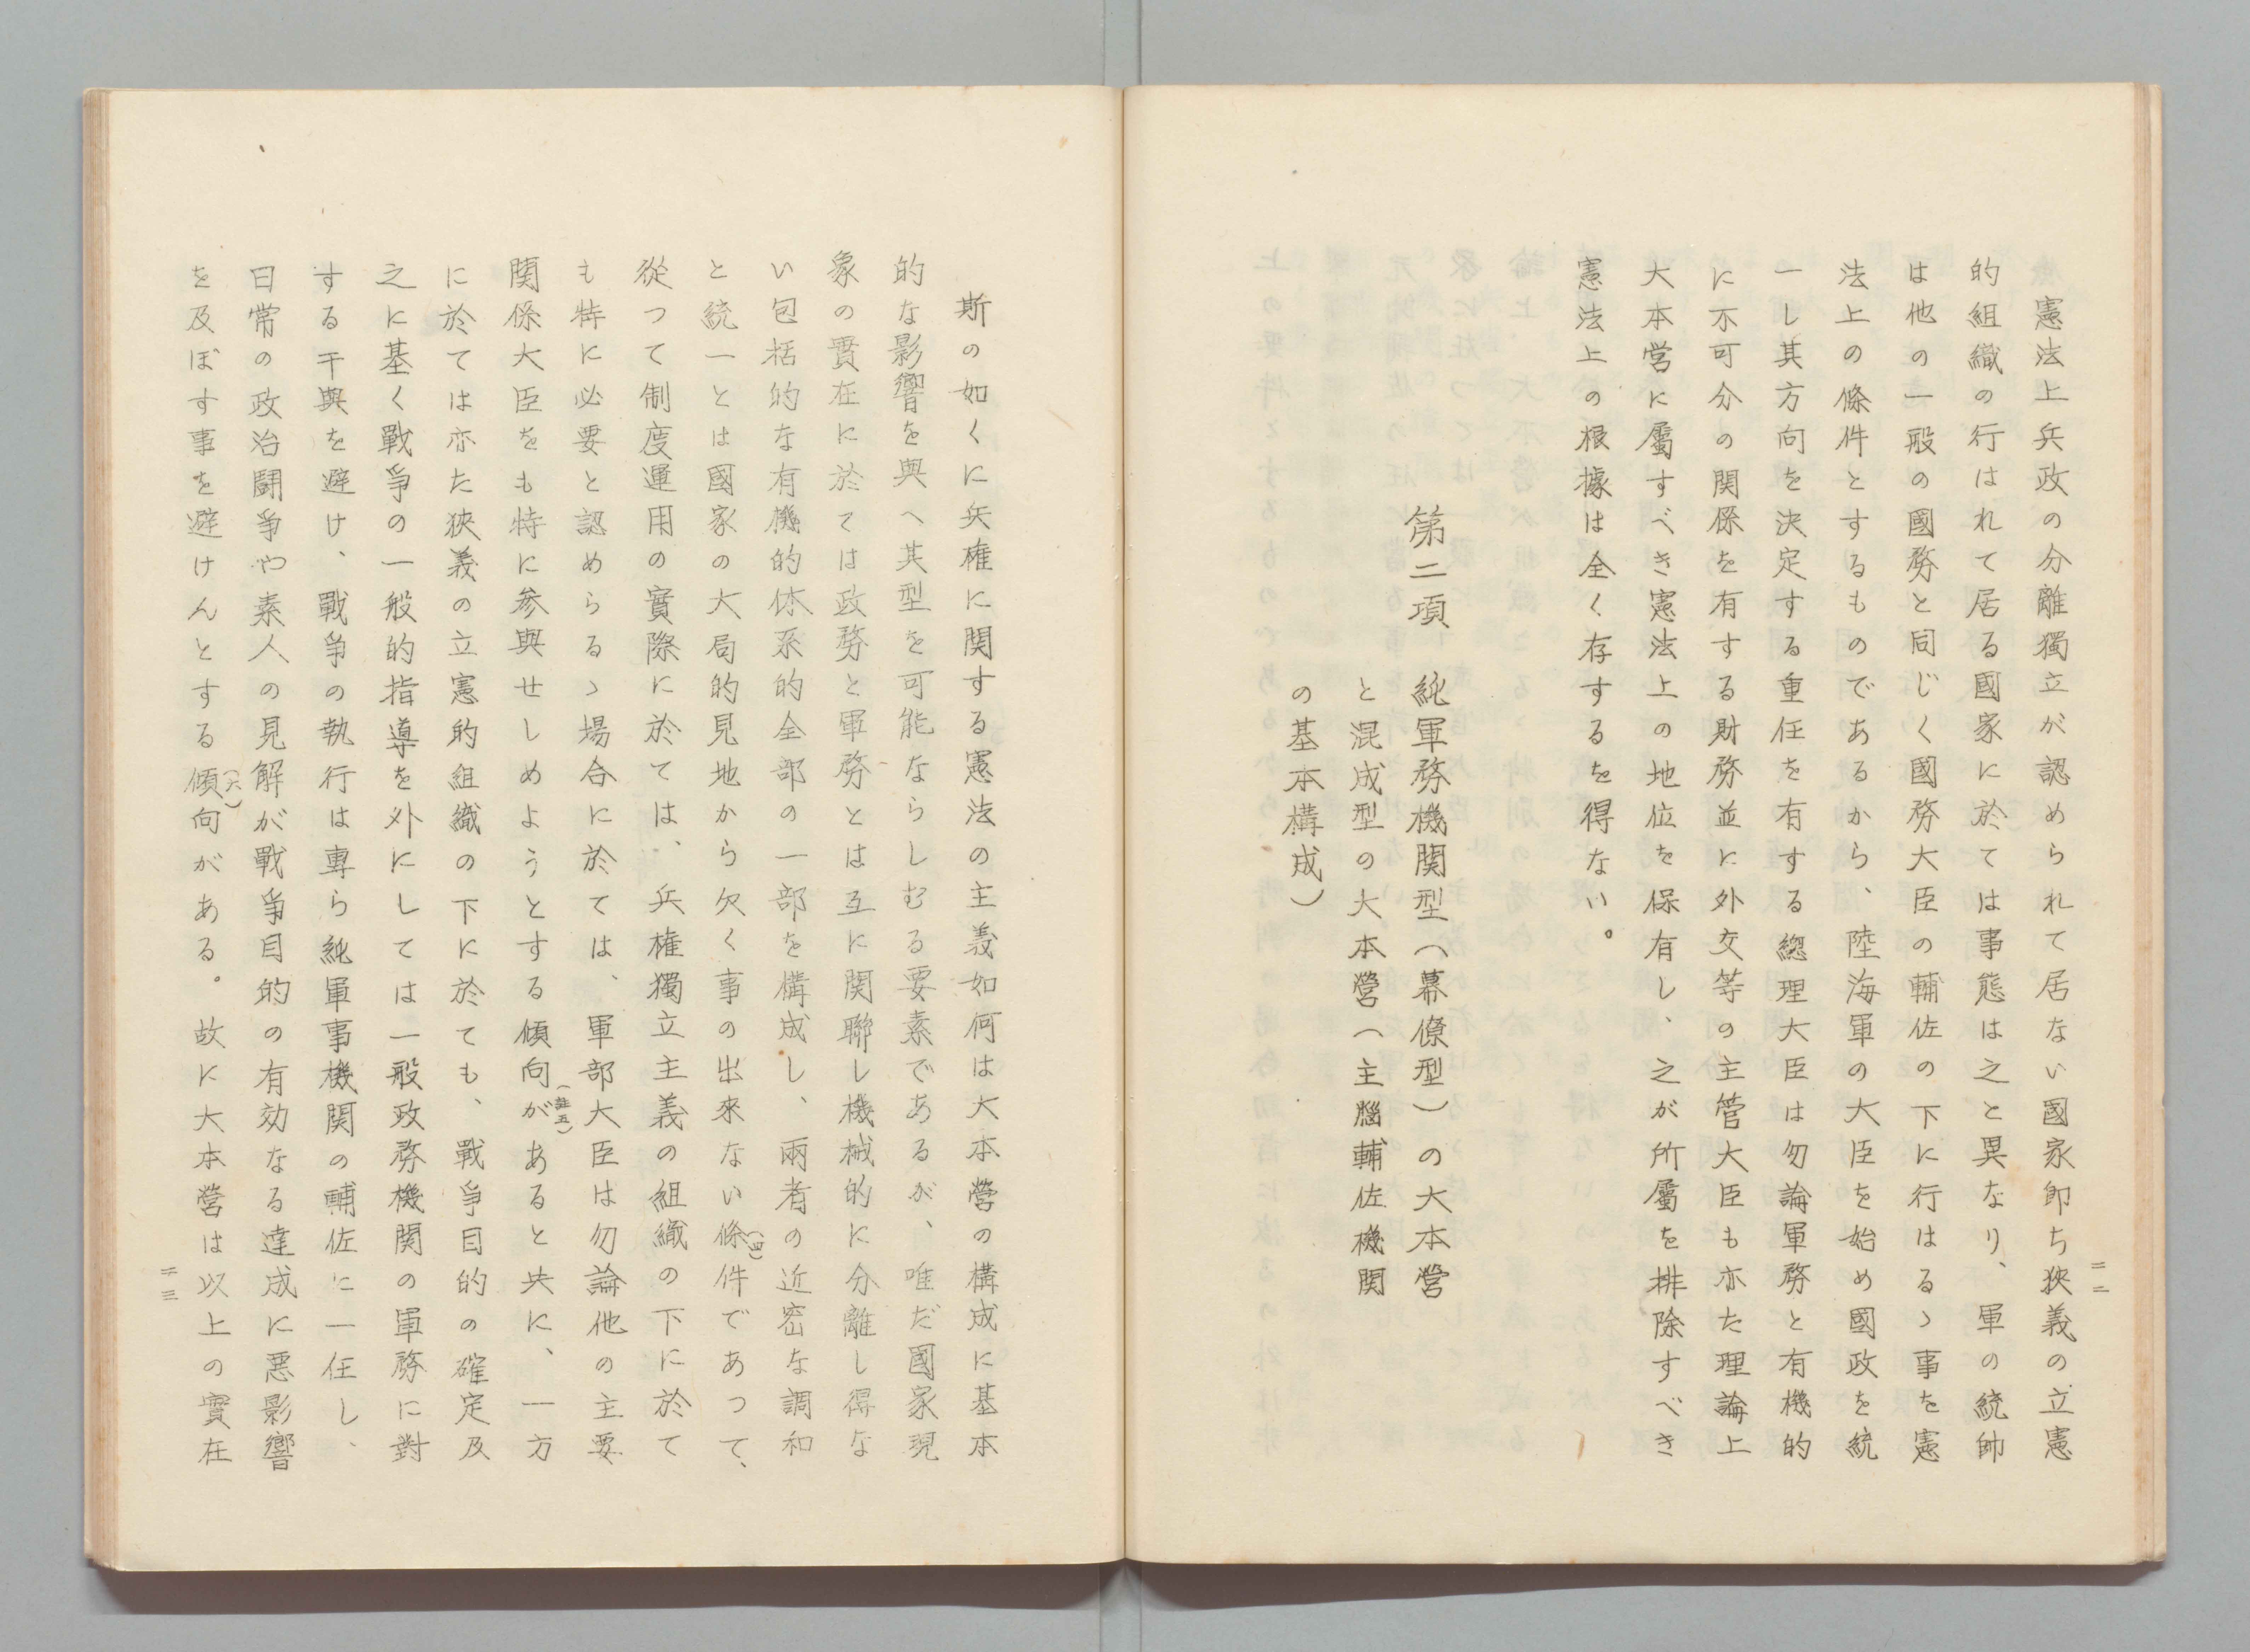 憲法上兵政の分離獨立が認められて居ない國家卽ち狹義の立憲
的組織の行はれて居る國家に於ては事態は之と異なり、軍の統帥
は他の一般の國務と同じく國務大臣の輔佐の下に行はるゝ事を憲
法上の條件とするものであるから、陸海軍の大臣を始め國政を統
一し其方向を決定する重任を有する總理大臣は勿論軍務と有機的
に不可分の関係を有する財務並に外交等の主管大臣も亦た理論上
大本営に屬すべき憲法上の地位を保有し、之が所屬を排除すべき
憲法上の根據は全く存するを得ない。
第二項　純軍務機関型（幕僚型）の大本営
と混成型の大本營（主腦輔佐機関
の基本構成）
二二
斯の如くに兵権に関する憲法の主義如何は大本營の構成に基本
的な影響を與へ其型を可能ならしむる要素であるが、唯だ國家現
象の實在に於ては政務と軍務とは互に関聯し機械的に分離し得な
い包括的な有機的体系的全部の一部を構成し、兩者の近密な調和
と統一とは國家の大局的見地から欠く事の出來ない條件（四）であつて、
従つて制度運用の實際に於ては、兵権獨立主義の組織の下に於て
も特に必要と認めらるゝ場合に於ては、軍部大臣は勿論他の主要
関係大臣をも特に参與せしめようとする傾向が（註五）あると共に、一方
に於ては亦た狹義の立憲的組織の下に於ても、戰爭目的の確定及
之に基く戰爭の一般的指導を外にしては一般政務機関の軍務に對
する干與を避け、戰爭の執行は專ら純軍事機関の輔佐に一任し、
日常の政治闘爭や素人の見解が戰爭目的の有効なる達成に悪影響
を及ぼす事を避けんとする傾向（六）がある。故に大本営は以上の實在
二三